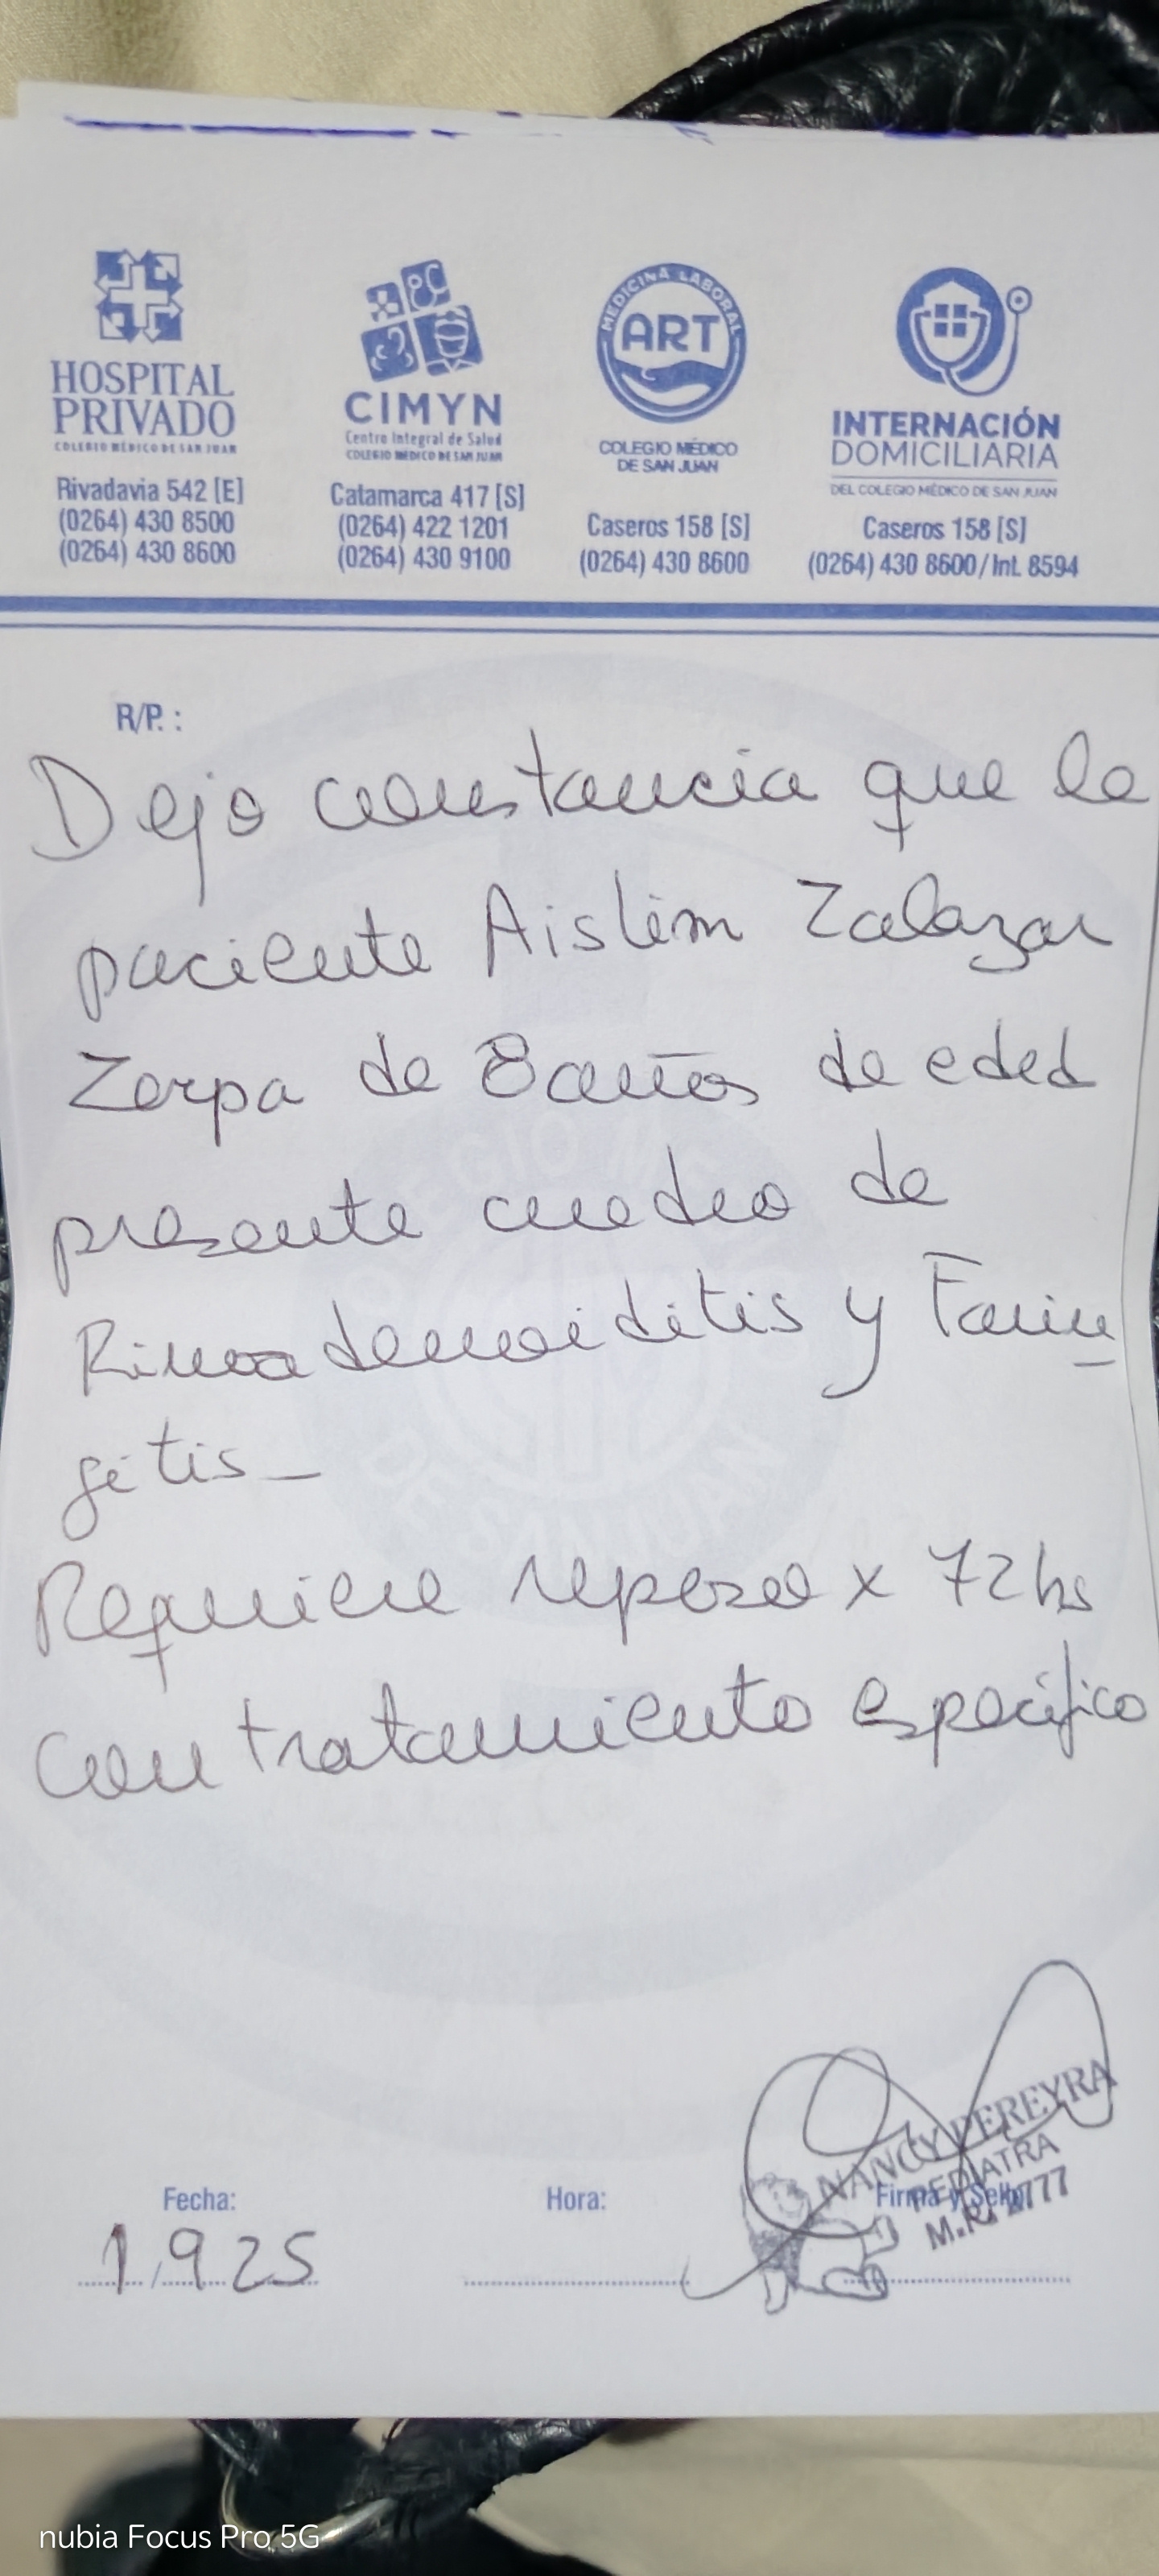 HOSPITAL
PRIVADO
COLEGIO MÉDICO DE SAN JUAN
Rivadavia 542 [E]
(0264) 430 8500
(0264) 430 8600
CIMYN
Centro Integral de Salud
COLEGIO MÉDICO DE SAN JUAN
Catamarca 417 [S]
(0264) 422 1201
(0264) 430 9100
MEDICINA LABORAL
ART
COLEGIO MÉDICO
DE SAN JUAN
Caseros 158 [S]
(0264) 430 8600
INTERNACIÓN
DOMICILIARIA
DEL COLEGIO MÉDICO DE SAN JUAN
Caseros 158 [S]
(0264) 430 8600 / Int. 8594
R/P. :
Dejo constancia que la
paciente Aislim Zalazar
Zerpa de 8 años de edad
presenta cuadro de
Rinoadenoiditis y Farin
gitis_
Requiere reposo x 72 hs
con tratamiento específico
NANCY PEREYRA
PEDIATRA
M.P.
Fecha:
1/9 25
Hora:
Firma y Sello
COLEGIO MÉDICO
DE SAN JUAN
nubia Focus Pro 5G